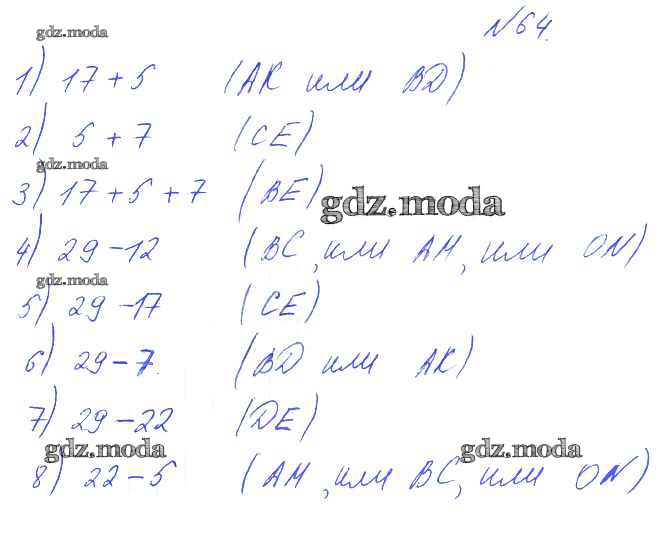 gdz.moda
№64.
1) 17+5 (AK или BD)
2) 5+7 (CE)
gdz.moda
3) 17+5+7 (BE)
gdz.moda
4) 29-12 (BC, или AM, или ON)
gdz.moda
5) 29-17 (CE)
6) 29-7. (BD или AK)
7) 29-22 (DE)
gdz.moda gdz.moda
8) 22-5 (AM, или BC, или ON)